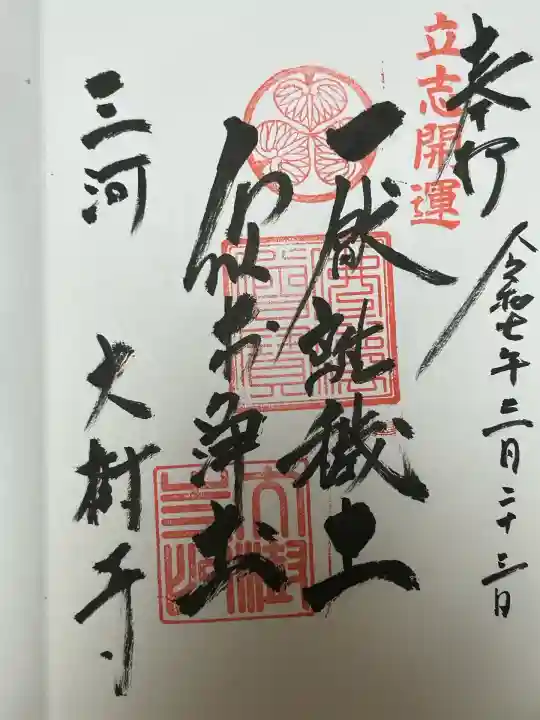 奉拝
立志開運
令和七年三月二十三日
厭離穢土
欣求浄土
三河
大樹寺